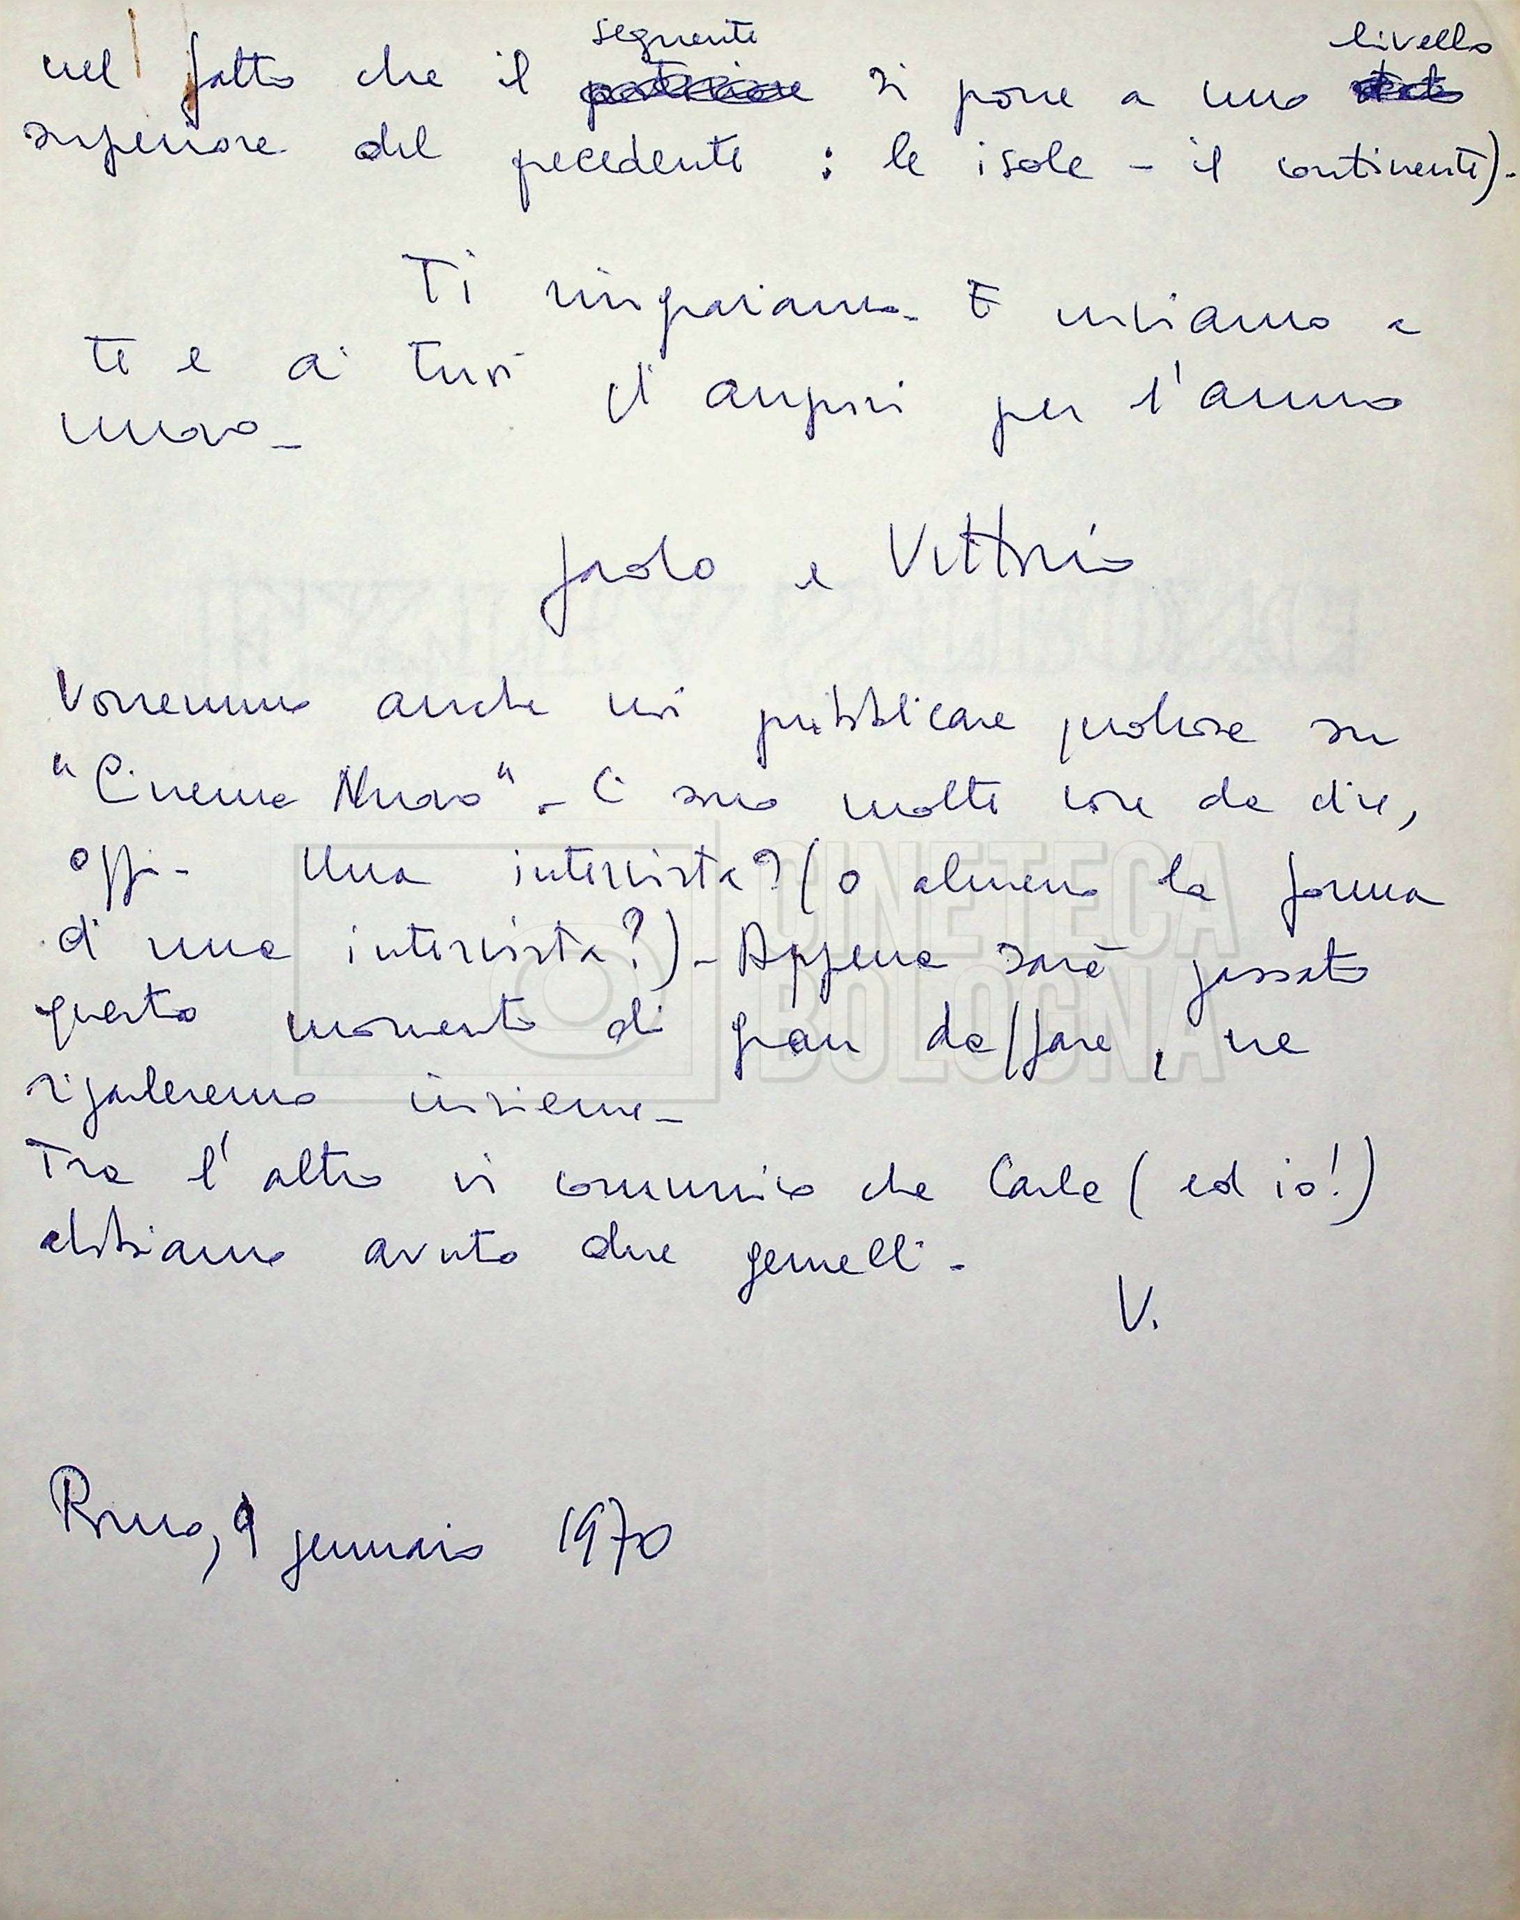 seguente livello
nel fatto che il si pone a uno
superiore del precedente : le isole - il continente).
Ti ringraziamo. E inviamo a
te e ai tuoi gli auguri per l'anno
nuovo.
Paolo e Vittorio
Vorremmo anche noi pubblicare qualcosa su
"Cinema Nuovo". Ci sono molte cose da dire,
oggi. Una intervista? (o almeno la forma
di una intervista?). Appena sarà passato
questo momento di gran daffare, ne
riparleremo insieme.
Tra l'altro vi comunico che Carla (ed io!)
abbiamo avuto due gemelli.
V.
Roma, 9 gennaio 1970
CINETECA
BOLOGNA